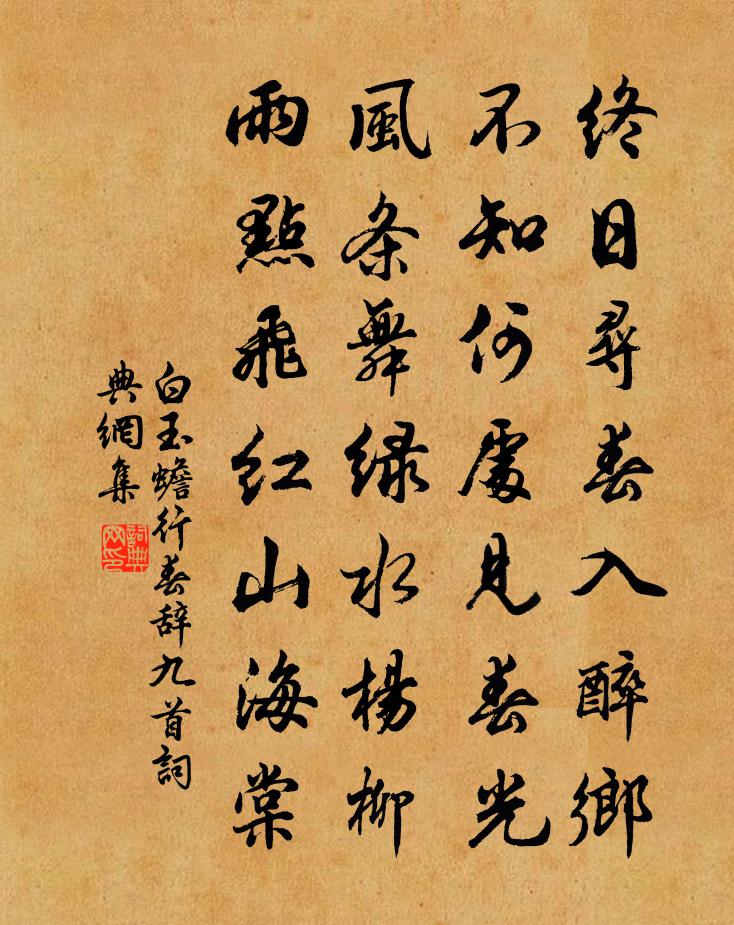 終日尋春入醉鄉
不知何處見春光
風条舞绿水楊柳
雨點飛红山海棠
白玉蟾行春辞九首詞
典網集
詞典
网印